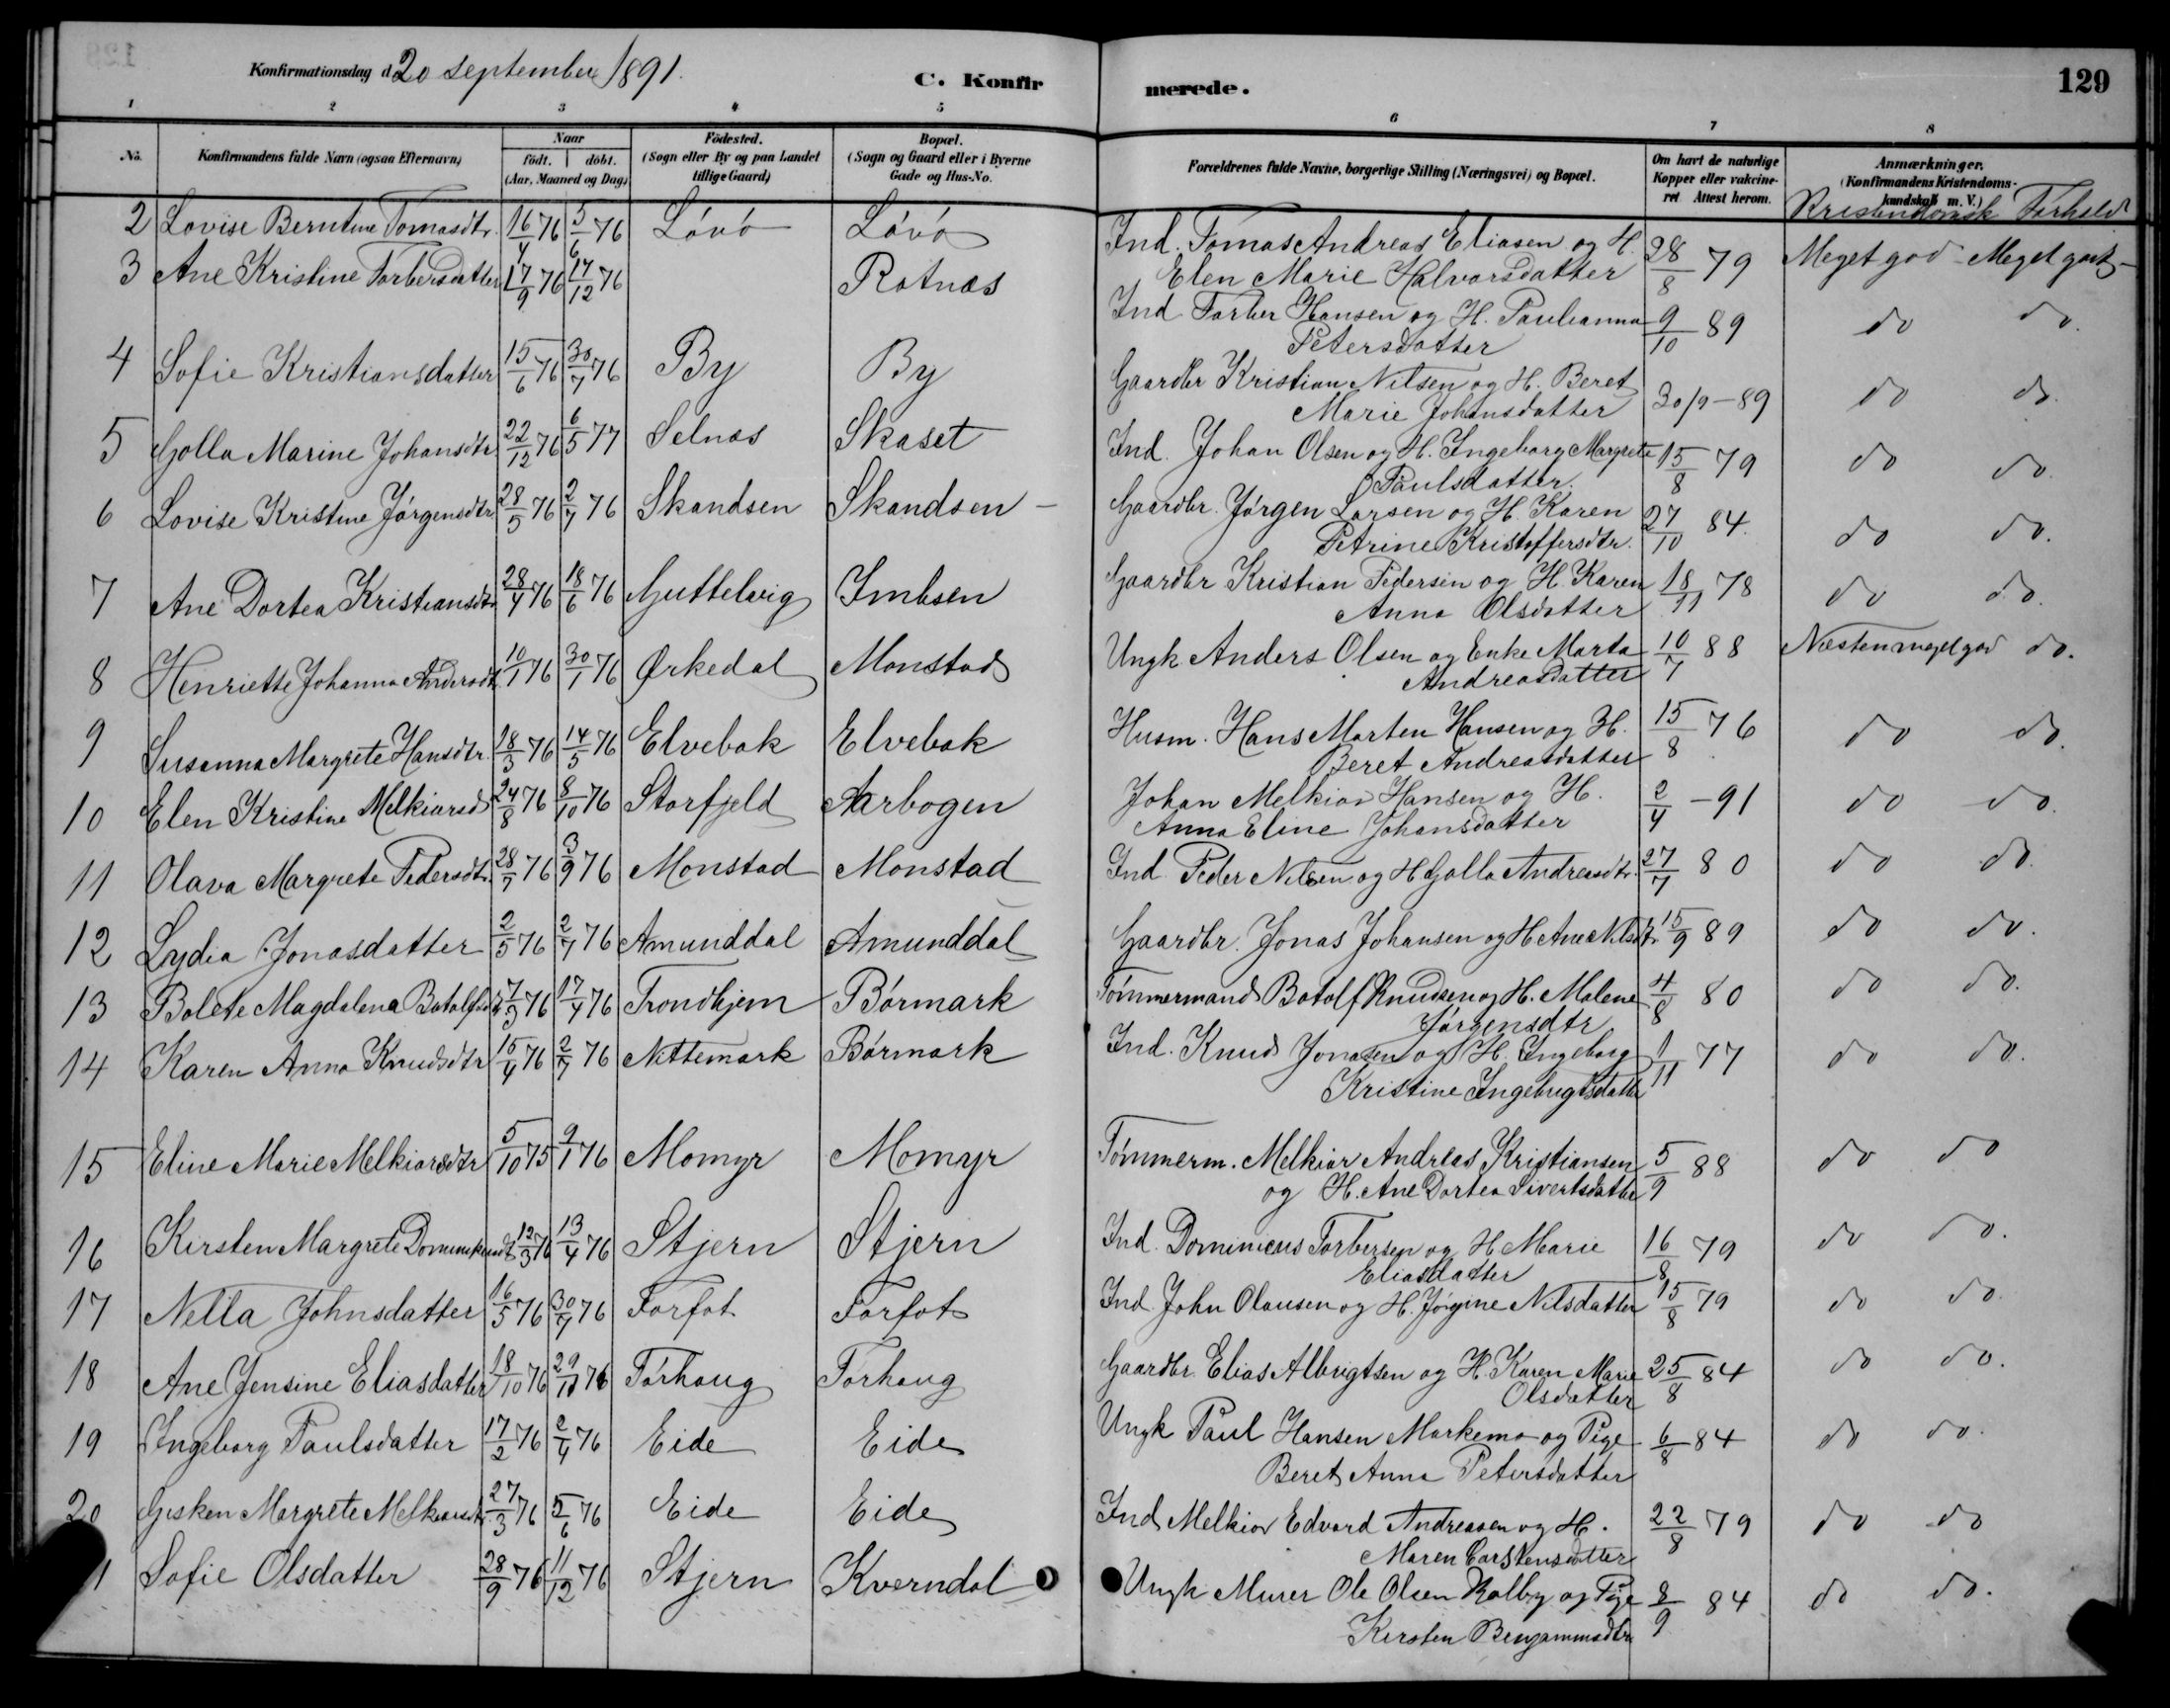 Konfirmationsdag d 20 september 1891.
C. Konfirmerede.
129
1 2 3 4 5 6 7 8
No. Konfirmandens fulde Navn (ogsaa Efternavn) Naar födt. döbt. (Aar, Maaned og Dag) Födested. (Sogn eller By og paa Landet tillige Gaard) Bopæl. (Sogn og Gaard eller i Byerne Gade og Hus-No. Forældrenes fulde Navne, borgerlige Stilling (Næringsvei) og Bopæl. Om havt de naturlige Kopper eller vakcineret Attest herom. Anmærkninger. (Konfirmandens Kristendomskundskab m. V.)
Kristendomsk Forhold
2 Lovise Berntine Tomasdtr. 16/4 76 5/6 76 Lövö Lövö Ind. Tomas Andreas Eliasen og H. 28/8 79 Meget god - Meget godt -
Elen Marie Halvorsdatter
3 Ane Kristine Torbersdatter 17/9 76 17/12 76 Rotnæs Ind Torber Hansen og H. Paulianna 9/10 89 do do.
Petersdatter
4 Sofie Kristiansdatter 15/6 76 30/7 76 By By Gaardbr Kristian Nilsen og H. Beret 30/9 - 89 do do.
Marie Johansdatter
5 Golla Marine Johansdtr 22/12 76 6/5 77 Selnæs Skaset Ind. Johan Olsen og H. Ingeborg Margrete 15/8 79 do do.
Paulsdatter.
6 Lovise Kristine Jörgensdtr 28/5 76 2/7 76 Skandsen Skandsen - Gaardbr. Jörgen Larsen og H. Karen 27/10 84. do do.
Petrine Kristoffersdtr.
7 Ane Dortea Kristiansdtr 28/4 76 18/6 76 Guttelvig Imbsen Gaardbr Kristian Pedersen og H. Karen 18/11 78 do do.
Anna Olsdatter
8 Henriette Johanna Andersdtr 10/1 76 30/1 76 Ørkedal Monstad Ungk Anders Olsen og Enke Marta 10/7 88 Næsten meget god do.
Andreasdatter
9 Susanna Margrete Hansdtr. 18/3 76 14/5 76 Elvebak Elvebak Husm. Hans Morten Hansen og H. 15/8 76 do do.
Beret Andreasdatter
10 Elen Kristine Melkiorsd 24/8 76 8/10 76 Storfjeld Aarbogen Johan Melkior Hansen og H. 2/4 - 91 do do.
Anna Eline Johansdatter
11 Olava Margrete Pedersdtr. 28/7 76 3/9 76 Monstad Monstad Ind Peder Nilsen og H Golla Andreasdtr. 27/7 80 do do.
12 Lydia Jonasdatter 2/5 76 2/7 76 Amunddal Amunddal Gaardbr. Jonas Johansen og H Ane Nilsdtr 15/9 89 do do.
13 Bolete Magdalena Botolfsdtr 7/3 76 17/4 76 Trondhjem Börmark Tömmermand Botolf Knudsen og H. Malene 4/8 80 do do.
Jörgensdtr
14 Karen Anna Knudsdtr 15/4 76 2/7 76 Nittemark Börmark Ind. Knud Jonasen og H. Ingeborg 1/11 77 do do.
Kristine Ingebrigtsdatter
15 Eline Marie Melkiorsdtr 5/10 75 9/1 76 Momyr Momyr Tömmerm. Melkior Andreas Kristiansen 5/9 88 do do
og H. Ane Dortea Sivertsdatter
16 Kirsten Margrete 12/3 76 13/4 76 Stjern Stjern Ind. Dominicus Torbersen og H Marie 16/8 79 do do.
Eliasdatter
17 Nella Johnsdatter 16/5 76 30/7 76 Forfot Forfot Ind. John Olausen og H. Jörgine Nilsdatter 15/8 79 do do
18 Ane Jensine Eliasdatter 18/10 76 29/11 76 Törhoug Törhoug Gaardbr. Elias Albrigtsen og H. Karen Marie 25/8 84 do do.
Olsdatter
19 Ingeborg Paulsdatter 17/2 76 2/4 76 Eide Eide Ungk Paul Hansen Markemo og Pige 6/8 84 do do.
Beret Anna Petersdatter
20 Gjesken Margrete Melkiorsdtr. 27/3 76 5/6 76 Eide Eide Ind Melkior Edvard Andreasen og H. 22/8 79 do do
Maren Carstensdatter
1 Sofie Olsdatter 28/9 76 11/12 76 Stjern Kverndal Ungk Murer Ole Olsen Kolby og Pige 8/9 84 do do.
Kirsten Benjaminsdtr